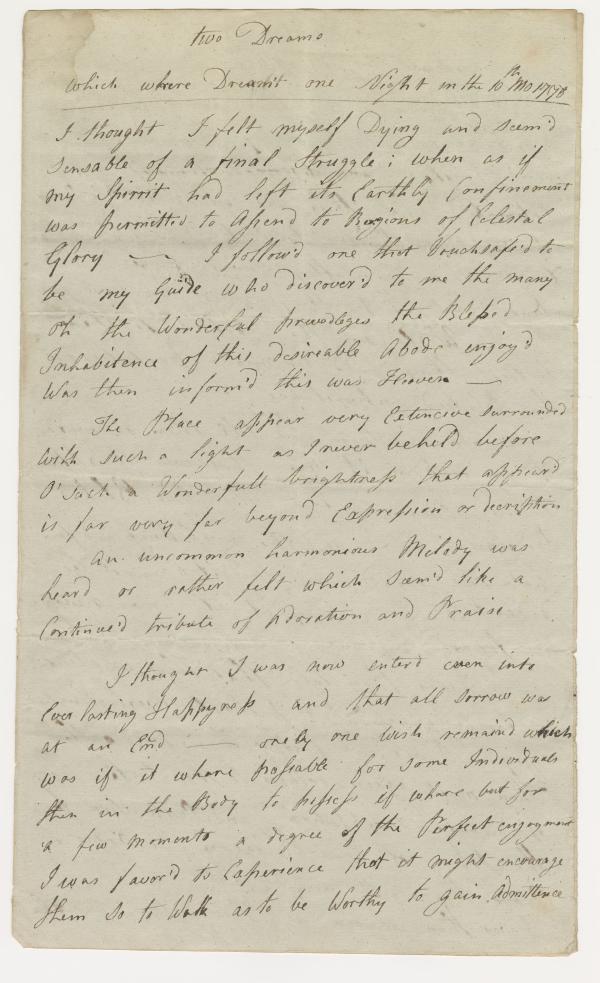 two Dreams
which where Dreamt one Night in the 10th Mo 1778
I thought I felt myself Dying and seem'd
sensable of a final Struggle; when as if
my Spirrit had left its Earthly Confinement
was permitted to Assend to Regions of Celestal
Glory — I follow'd one that Vouchsafe'd to
be my Guide who discover'd to me the many
oh the Wonderful the Blessed
Inhabitence of this desireable Abode enjoy'd
Was then inform'd this was Heaven —
The Place appear very Extencive surrounded
with such a light as I never beheld before
O' such a Wonderfull brightness that appear'd
is far very far beyond Expression or decription
an uncommon harmonious Melody was
heard or rather felt which seem'd like a
Continue'd tribute of Adoration and Praise
I thought I was now enterd even into
Everlasting Happyness and that all sorrow was
at an End — onely one wish remaind which
was if it whare possable for some Individuals
then in the Body to possess if whare but for
a few moments a degree of the Perfect enjoyment
I was favor'd to Experience that it might encourage
them so to Walk as to be Worthy to gain Admittence